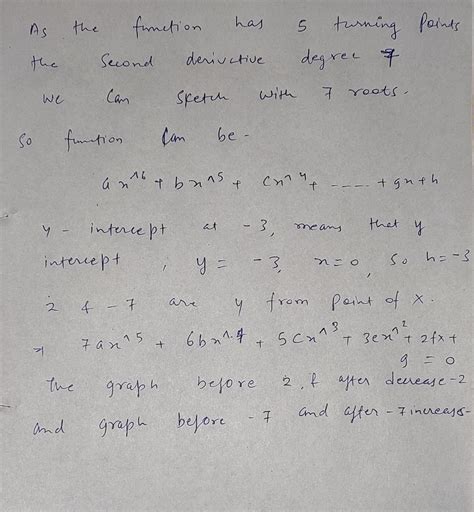 As the function has 5 turning Points
the second derivative degree 7
we can sketch with 7 roots.
So function can be -
ax^6 + bx^5 + cx^4 + ----- + gx + h
y - intercept at -3, means that y
intercept , y = -3, x = 0, so h = -3
2 & -7 are y from point of x.
7ax^5 + 6bx^4 + 5cx^3 + 3ex^2 + 2fx +
g = 0
The graph before 2, & after decrease -2
and graph before -7 and after -7 increase -